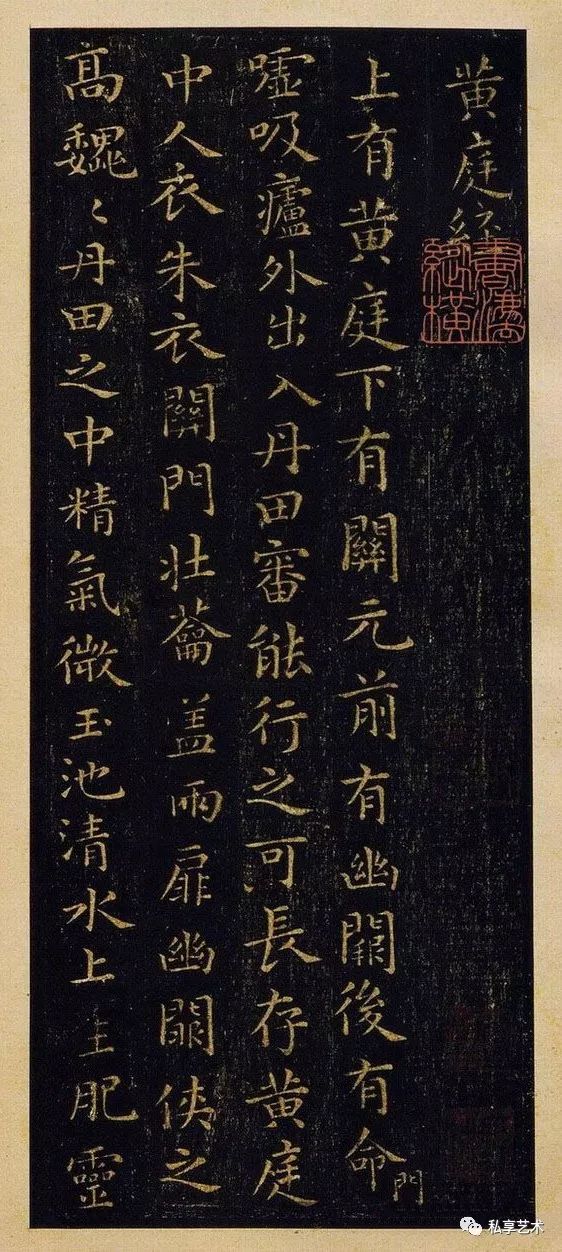 黄庭経
上有黄庭下有關元前有幽闕後有命門
嘘吸廬外出入丹田審能行之可長存黄庭
中人衣朱衣關門壮蘥盖兩扉幽闕侠之
高巍〻丹田之中精氣微玉池清水上生肥靈
私享艺术